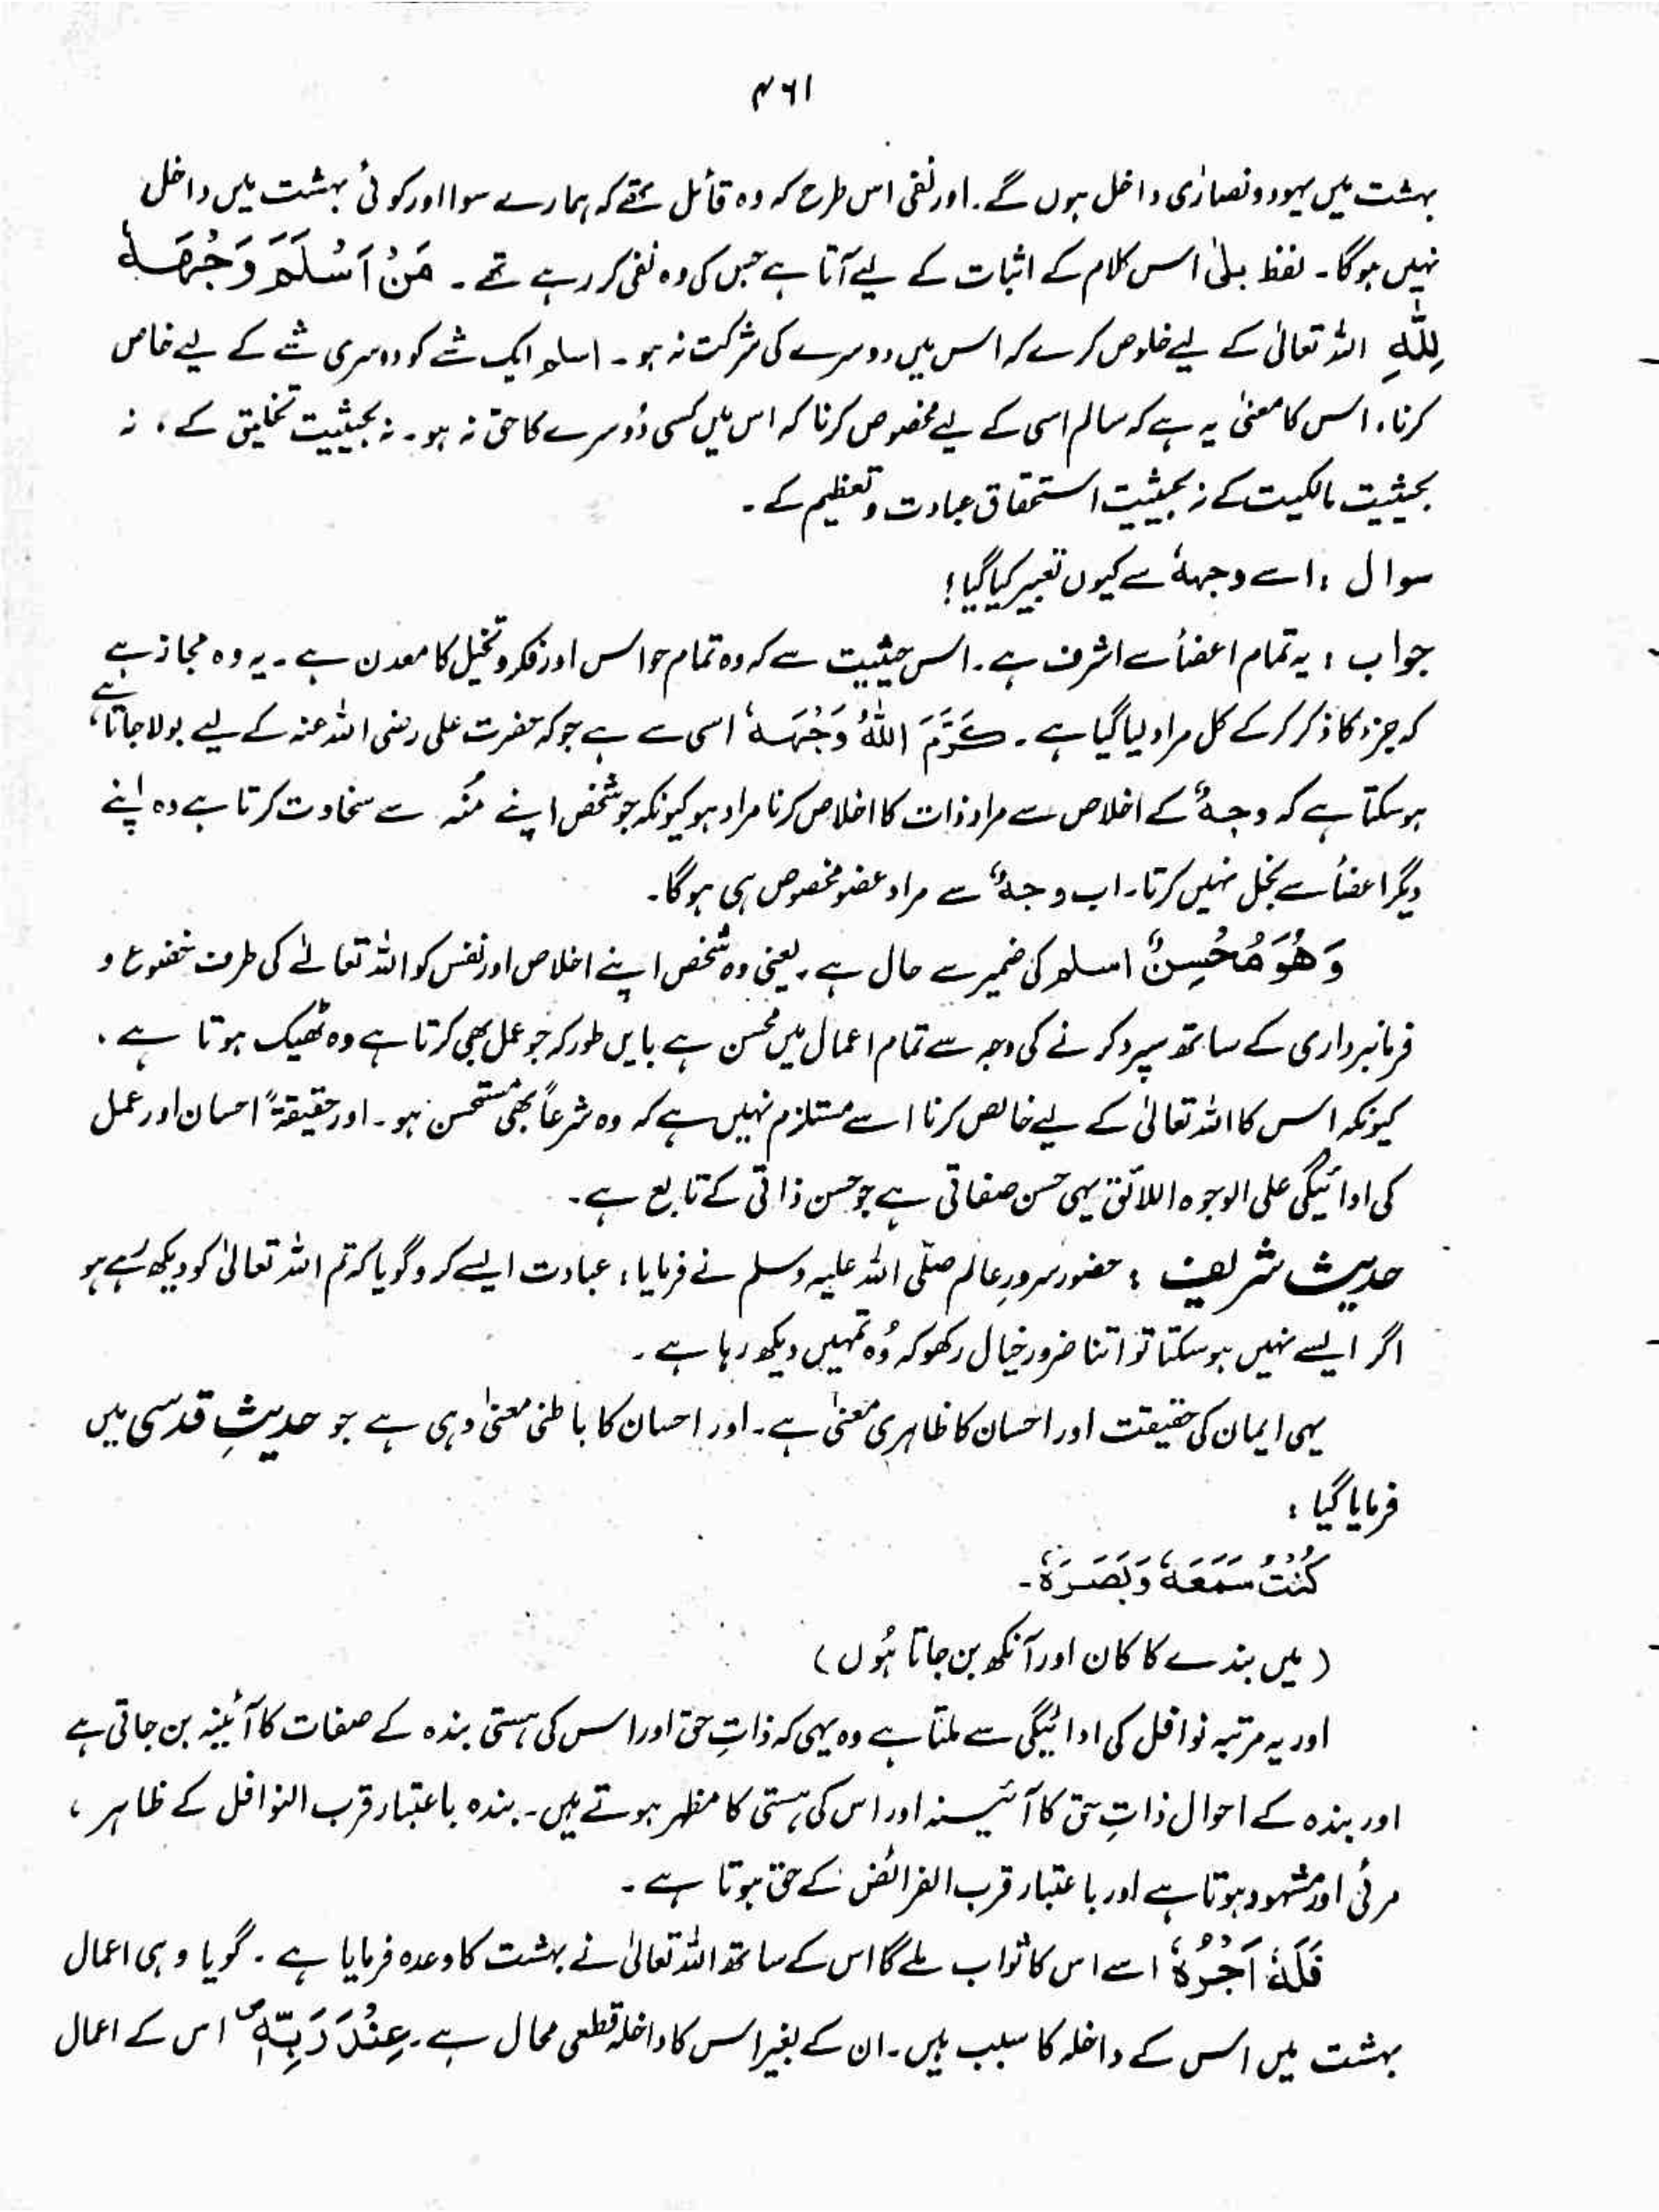 ۴۶۱
بہشت میں یہود و نصاریٰ داخل ہوں گے۔ اور نفی اس طرح کہ وہ قائل تھے کہ ہمارے سوا اور کوئی بہشت میں داخل
نہیں ہوگا۔ لفظ بلیٰ اس کلام کے اثبات کے لیے آتا ہے جس کی وہ نفی کر رہے تھے۔ مَنْ اَسْلَمَ وَجْهَهٗ
لِلّٰہِ اللہ تعالیٰ کے لیے خلوص کرے کہ اس میں دوسرے کی شرکت نہ ہو۔ اسلم ایک شے کو دوسری شے کے لیے خاص
کرنا، اس کا معنیٰ یہ ہے کہ سالم اسی کے لیے مخصوص کرنا کہ اس میں کسی دُوسرے کا حق نہ ہو۔ نہ بحیثیت تخلیق کے، نہ
بحیثیت مالکیت کے نہ بحیثیت استحقاق عبادت و تعظیم کے۔
سوال : اسے وجہهٗ سے کیوں تعبیر کیا گیا؟
جواب : یہ تمام اعضأ سے اشرف ہے۔ اس حیثیت سے کہ وہ تمام حواس اور فکر و تخیل کا معدن ہے۔ یہ وہ مجاز ہے
کہ جزء کا ذکر کر کے کل مراد لیا گیا ہے۔ کَرَّمَ اللّٰہُ وَجْهَهٗ اسی سے ہے جو کہ حضرت علی رضی اللہ عنہ کے لیے بولا جاتا ہے،
ہو سکتا ہے کہ وجہهٗ کے اخلاص سے مراد ذات کا اخلاص کرنا مراد ہو کیونکہ جو شخص اپنے مُنہ سے سخاوت کرتا ہے وہ اپنے
دیگر اعضأ سے بخل نہیں کرتا۔ اب وجہهٗ سے مراد عضو مخصوص ہی ہوگا۔
وَهُوَ مُحْسِنٌ اسلم کی ضمیر سے حال ہے۔ یعنی وہ شخص اپنے اخلاص اور نفس کو اللہ تعالےٰ کی طرف خضوع و
فرمانبرداری کے ساتھ سپرد کرنے کی وجہ سے تمام اعمال میں محسن ہے بایں طور کہ جو عمل بھی کرتا ہے وہ ٹھیک ہوتا ہے۔
کیونکہ اس کا اللہ تعالیٰ کے لیے خالص کرنا اسے مستلزم نہیں ہے کہ وہ شرعاً بھی مستحسن ہو۔ اور حقیقۃً احسان اور عمل
کی ادائیگی علی الوجوہ اللائق یہی حسن صفاتی ہے جو حسن ذاتی کے تابع ہے۔
حدیث شریف : حضور سرورِ عالم صلّی اللہ علیہ وسلم نے فرمایا : عبادت ایسے کرو گویا کہ تم اللہ تعالیٰ کو دیکھ رہے ہو
اگر ایسے نہیں ہو سکتا تو اتنا ضرور خیال رکھو کہ وُہ تمہیں دیکھ رہا ہے۔
یہی ایمان کی حقیقت اور احسان کا ظاہری معنیٰ ہے۔ اور احسان کا باطنی معنیٰ وہی ہے جو حدیثِ قدسی میں
فرمایا گیا :
کُنْتُ سَمَعَهٗ وَبَصَرَهٗ۔
(میں بندے کا کان اور آنکھ بن جاتا ہُوں)
اور یہ مرتبہ نوافل کی ادائیگی سے ملتا ہے وہ یہی کہ ذاتِ حق اور اس کی ہستی بندہ کے صفات کا آئینہ بن جاتی ہے
اور بندہ کے احوال ذاتِ حق کا آئینہ اور اس کی ہستی کا مظہر ہوتے ہیں۔ بندہ باعتبار قرب النوافل کے ظاہر،
مرئی اور مشہود ہوتا ہے اور باعتبار قرب الفرائض کے حق ہوتا ہے۔
فَلَهٗ اَجْرُهٗ اسے اس کا ثواب ملے گا اس کے ساتھ اللہ تعالیٰ نے بہشت کا وعدہ فرمایا ہے۔ گویا وہی اعمال
بہشت میں اس کے داخلہ کا سبب ہیں۔ ان کے بغیر اس کا داخلہ قطعی محال ہے۔ عِنْدَ رَبِّهٖ ص اس کے اعمال